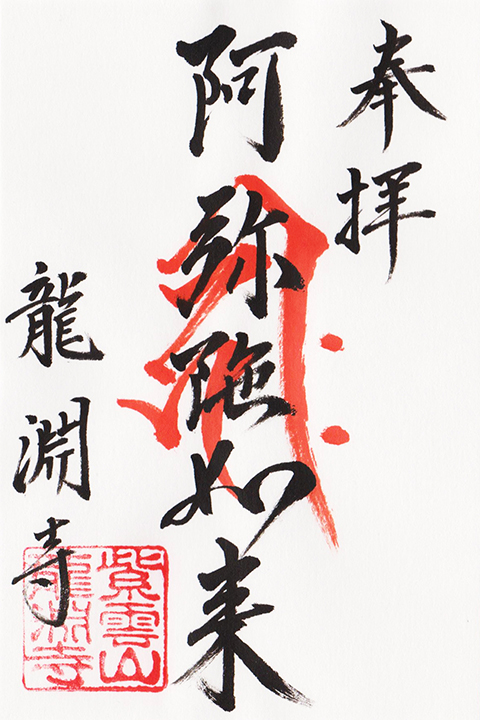 奉拝
阿弥陀如来
龍淵寺
紫雲山
龍淵寺
𑖮𑖿𑖨𑖱𑖾